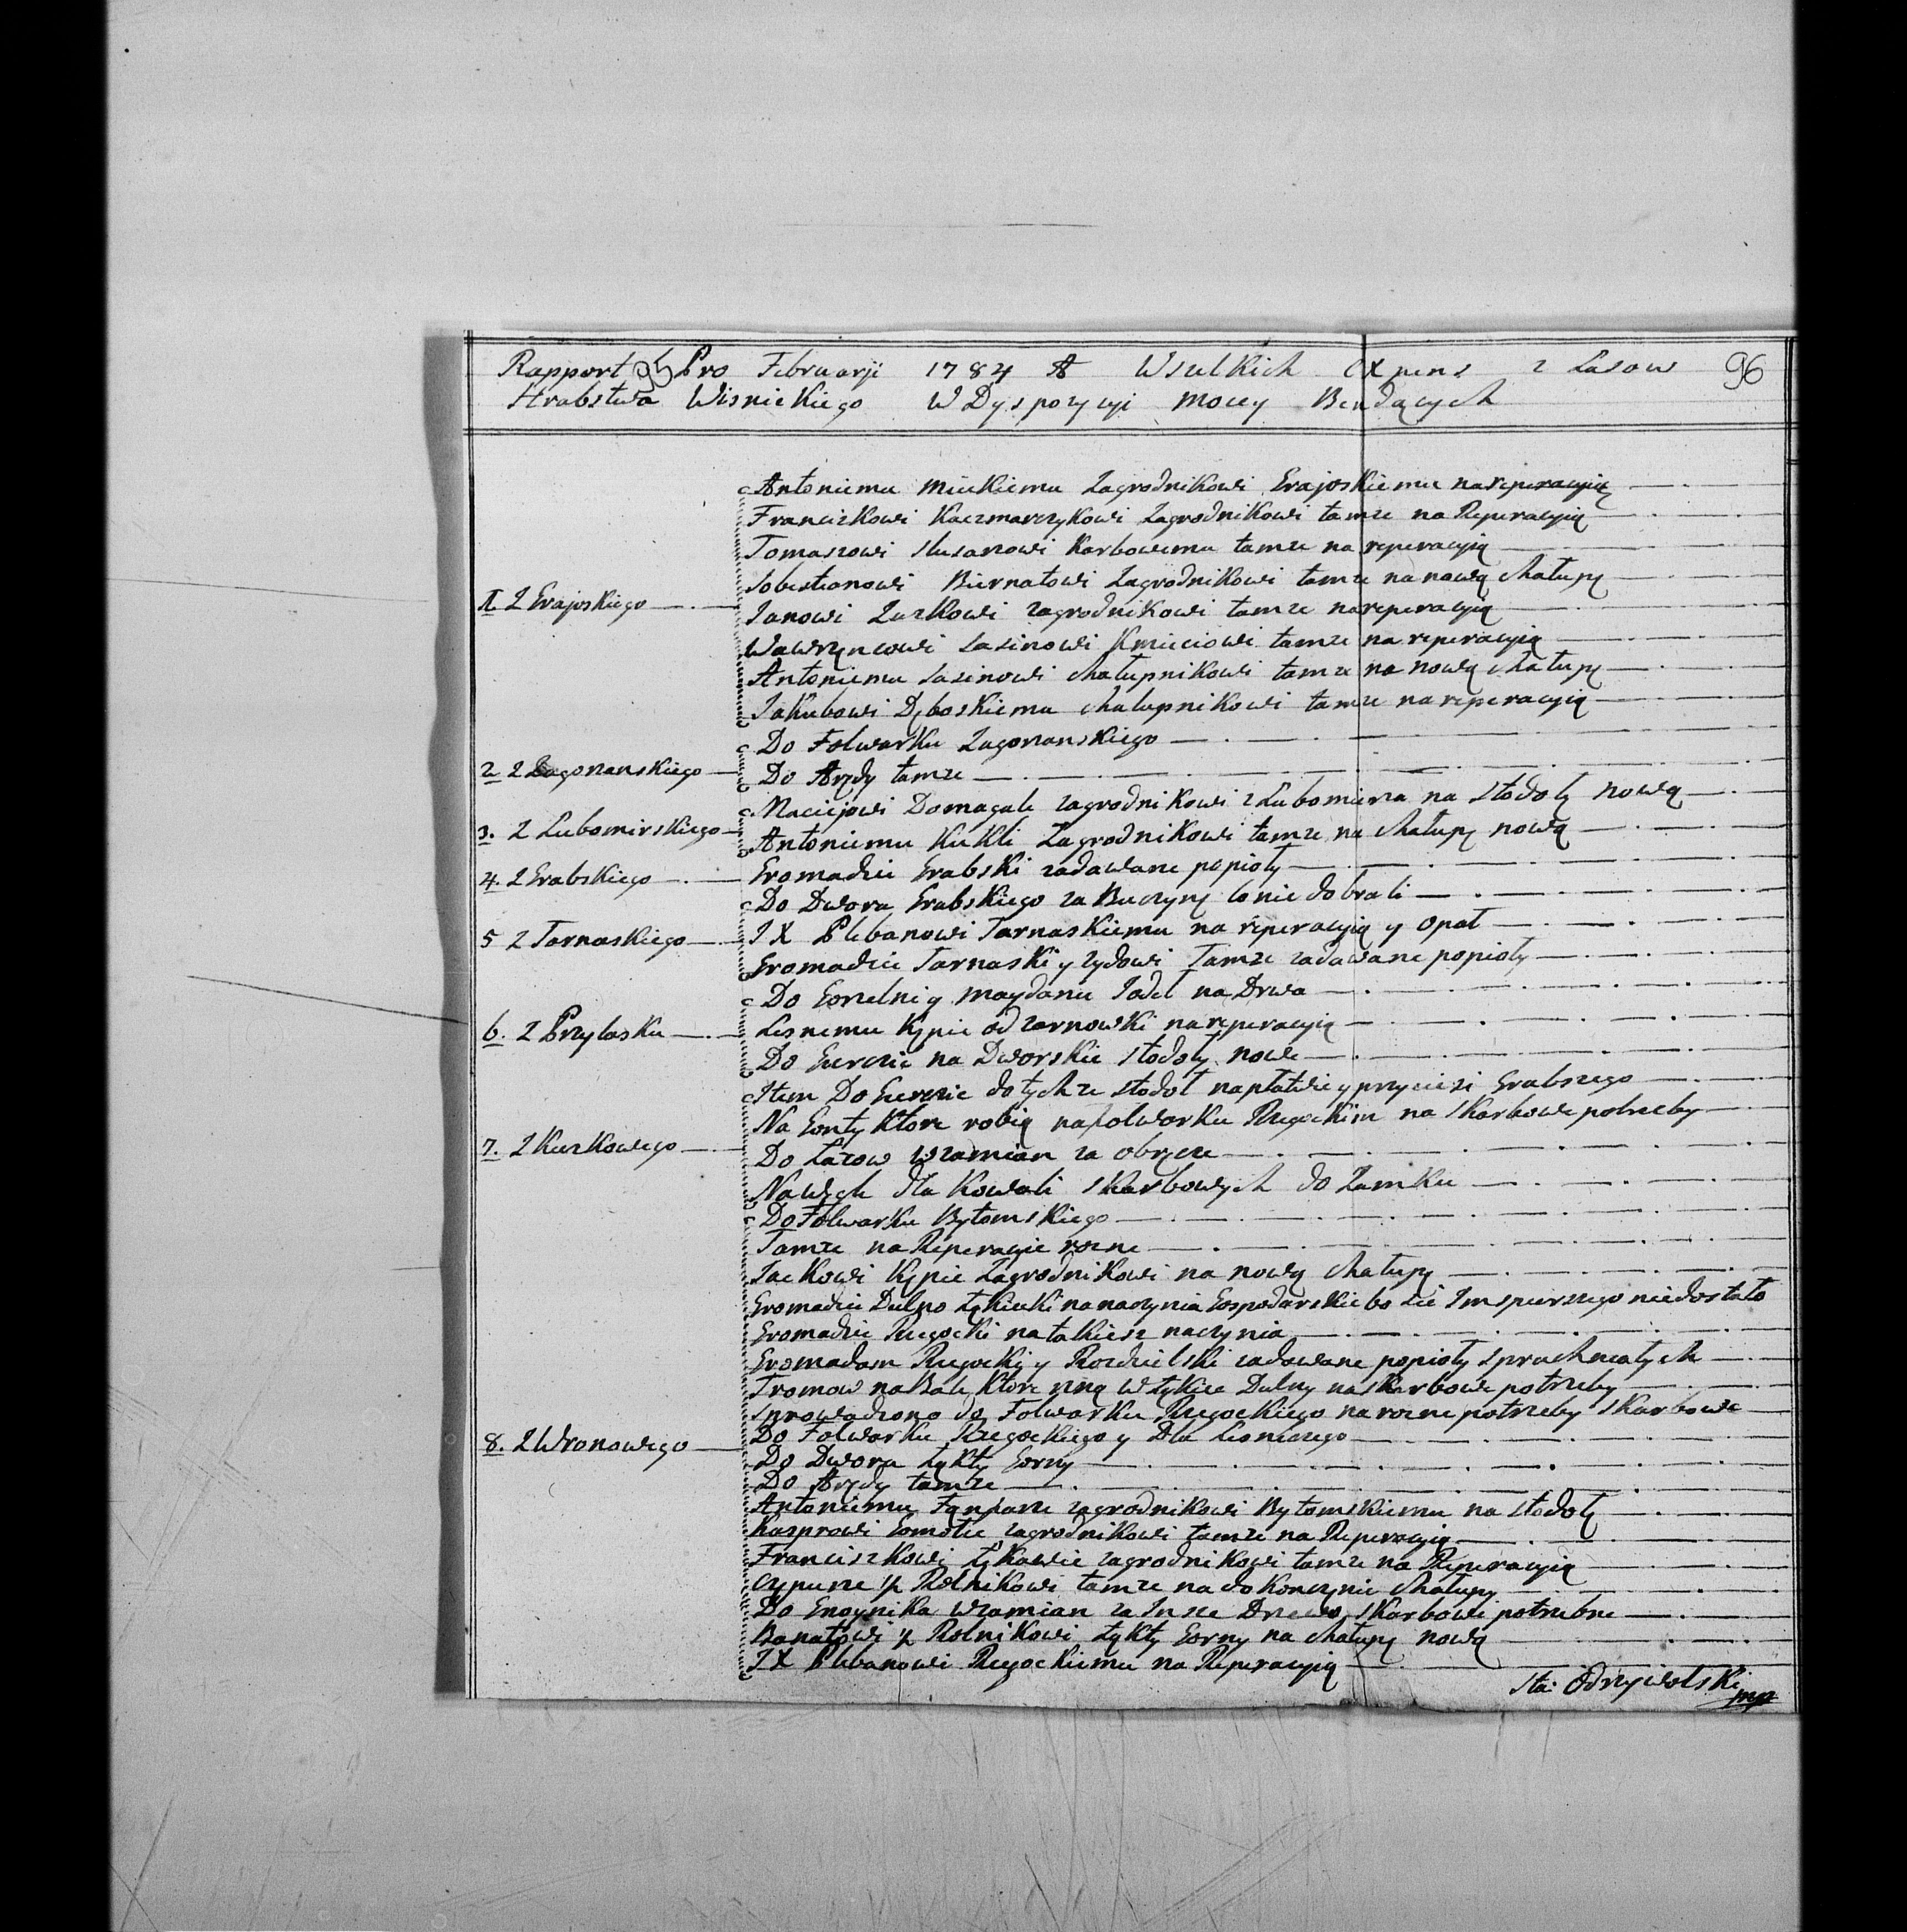 Rapport 95 Pro Februarji 1784 A Wselkich Expens z Lasow 96
Hrabstwa Wisnickiego W Dyspozycyi mocey Bendących
Antoniemu Mieckiemu Zagrodnikowi Grajoskiemu na reperacyią
Franciszkowi Kaczmarczykowi Zagrodnikowi tamze na Reperacyią
Tomaszowi Slusarzowi Karbowemu tamze na reperacyią
Sobestianowi Biernatowi Zagrodnikowi tamze na nową chałupę
1. Z Grajoskiego
Janowi Zuzkowi zagrodnikowi tamze na reperacyią
Wawrzyncowi Sasinowi Kmieciowi tamze na reperacyią
Antoniemu Sasinowi chałupnikowi tamze na nową chałupę
Jakubowi Dęboskiemu chalupnikowi tamze na reperacyią
Do Folwarku Zagorzanskiego
2 Z Zagorzanskiego
Do Arędy tamze
Maciejowi Domagale zagrodnikowi z Lubomierza na stodołę nową
3. Z Lubomirskiego
Antoniemu Kukli Zagrodnikowi tamze na chałupę nową
4. Z Grabskiego
Gromadzie Grabski zadawane popioły
Do Dwora Grabskiego za Buczynę co nie dobrali
5 Z Tarnaskiego
J X Plebanowi Tarnaskiemu na reperacyią y opał
Gromadzie Tarnaski y zydowi Tamze zadawane popioły
Do Gorzelni y maydanu Jodeł na Drwa
6. Z Przylasku
Lesnemu Kępie od zarnowski na reperacyią
Do Gierczic na Dworskie stodoły nowe
Item Do Gierczic do tychze stodoł na płatwie y przyciesi Grabszego
Na Gonty Ktore robią na folwarku Rzegockim na skarbowe potrzeby
7. Z Kuzkowego
Do Łazow w zamian za obręcze
Na węgle dla Kowali skarbowych do Zamku
Do Folwarku Bytomskiego
Tamze na Reperacyie rozne
Jackowi Kępie Zagrodnikowi na nową chałupę
Gromadzie Dulno Łękiecki na naczynia Gospodarskie bo sie Im spierszego niedostało
Gromadzie Rzegocki na takiesz naczynia
Gromadom Rzegocki y Rozdzielski zadawane popioły sprochniałych
Tramow na Bale, Ktore rzną w Łękice Dulny na skarbowe potrzeby
Sprowadzono do Folwarku Rzegockiego na rozne potrzeby skarbowe
8. Z Wronowego
Do Folwarku Rzegockiego y Dla Lesniczego
Do Dwora Łękty Gorny
Do Arędy tamze
Antoniemu Fąnfarze zagrodnikowi Bytomskiemu na stodołę
Kasprowi Gomołce zagrodnikowi tamze na Reperacyią
Franciszkowi Łękawie zagrodnikowi tamze na Reperacyią
Cypurze ½ Rolnikowi tamze na dokonczynie chałupy
Do Gnoynika w zamian za Insze Drzewo skarbowi potrzebne
Banatowi ½ Rolnikowi Łękty Gorny na chałupę nową
J X Plebanowi Rzegockiemu na Reperacyią
Sta: Odrzywolski mp